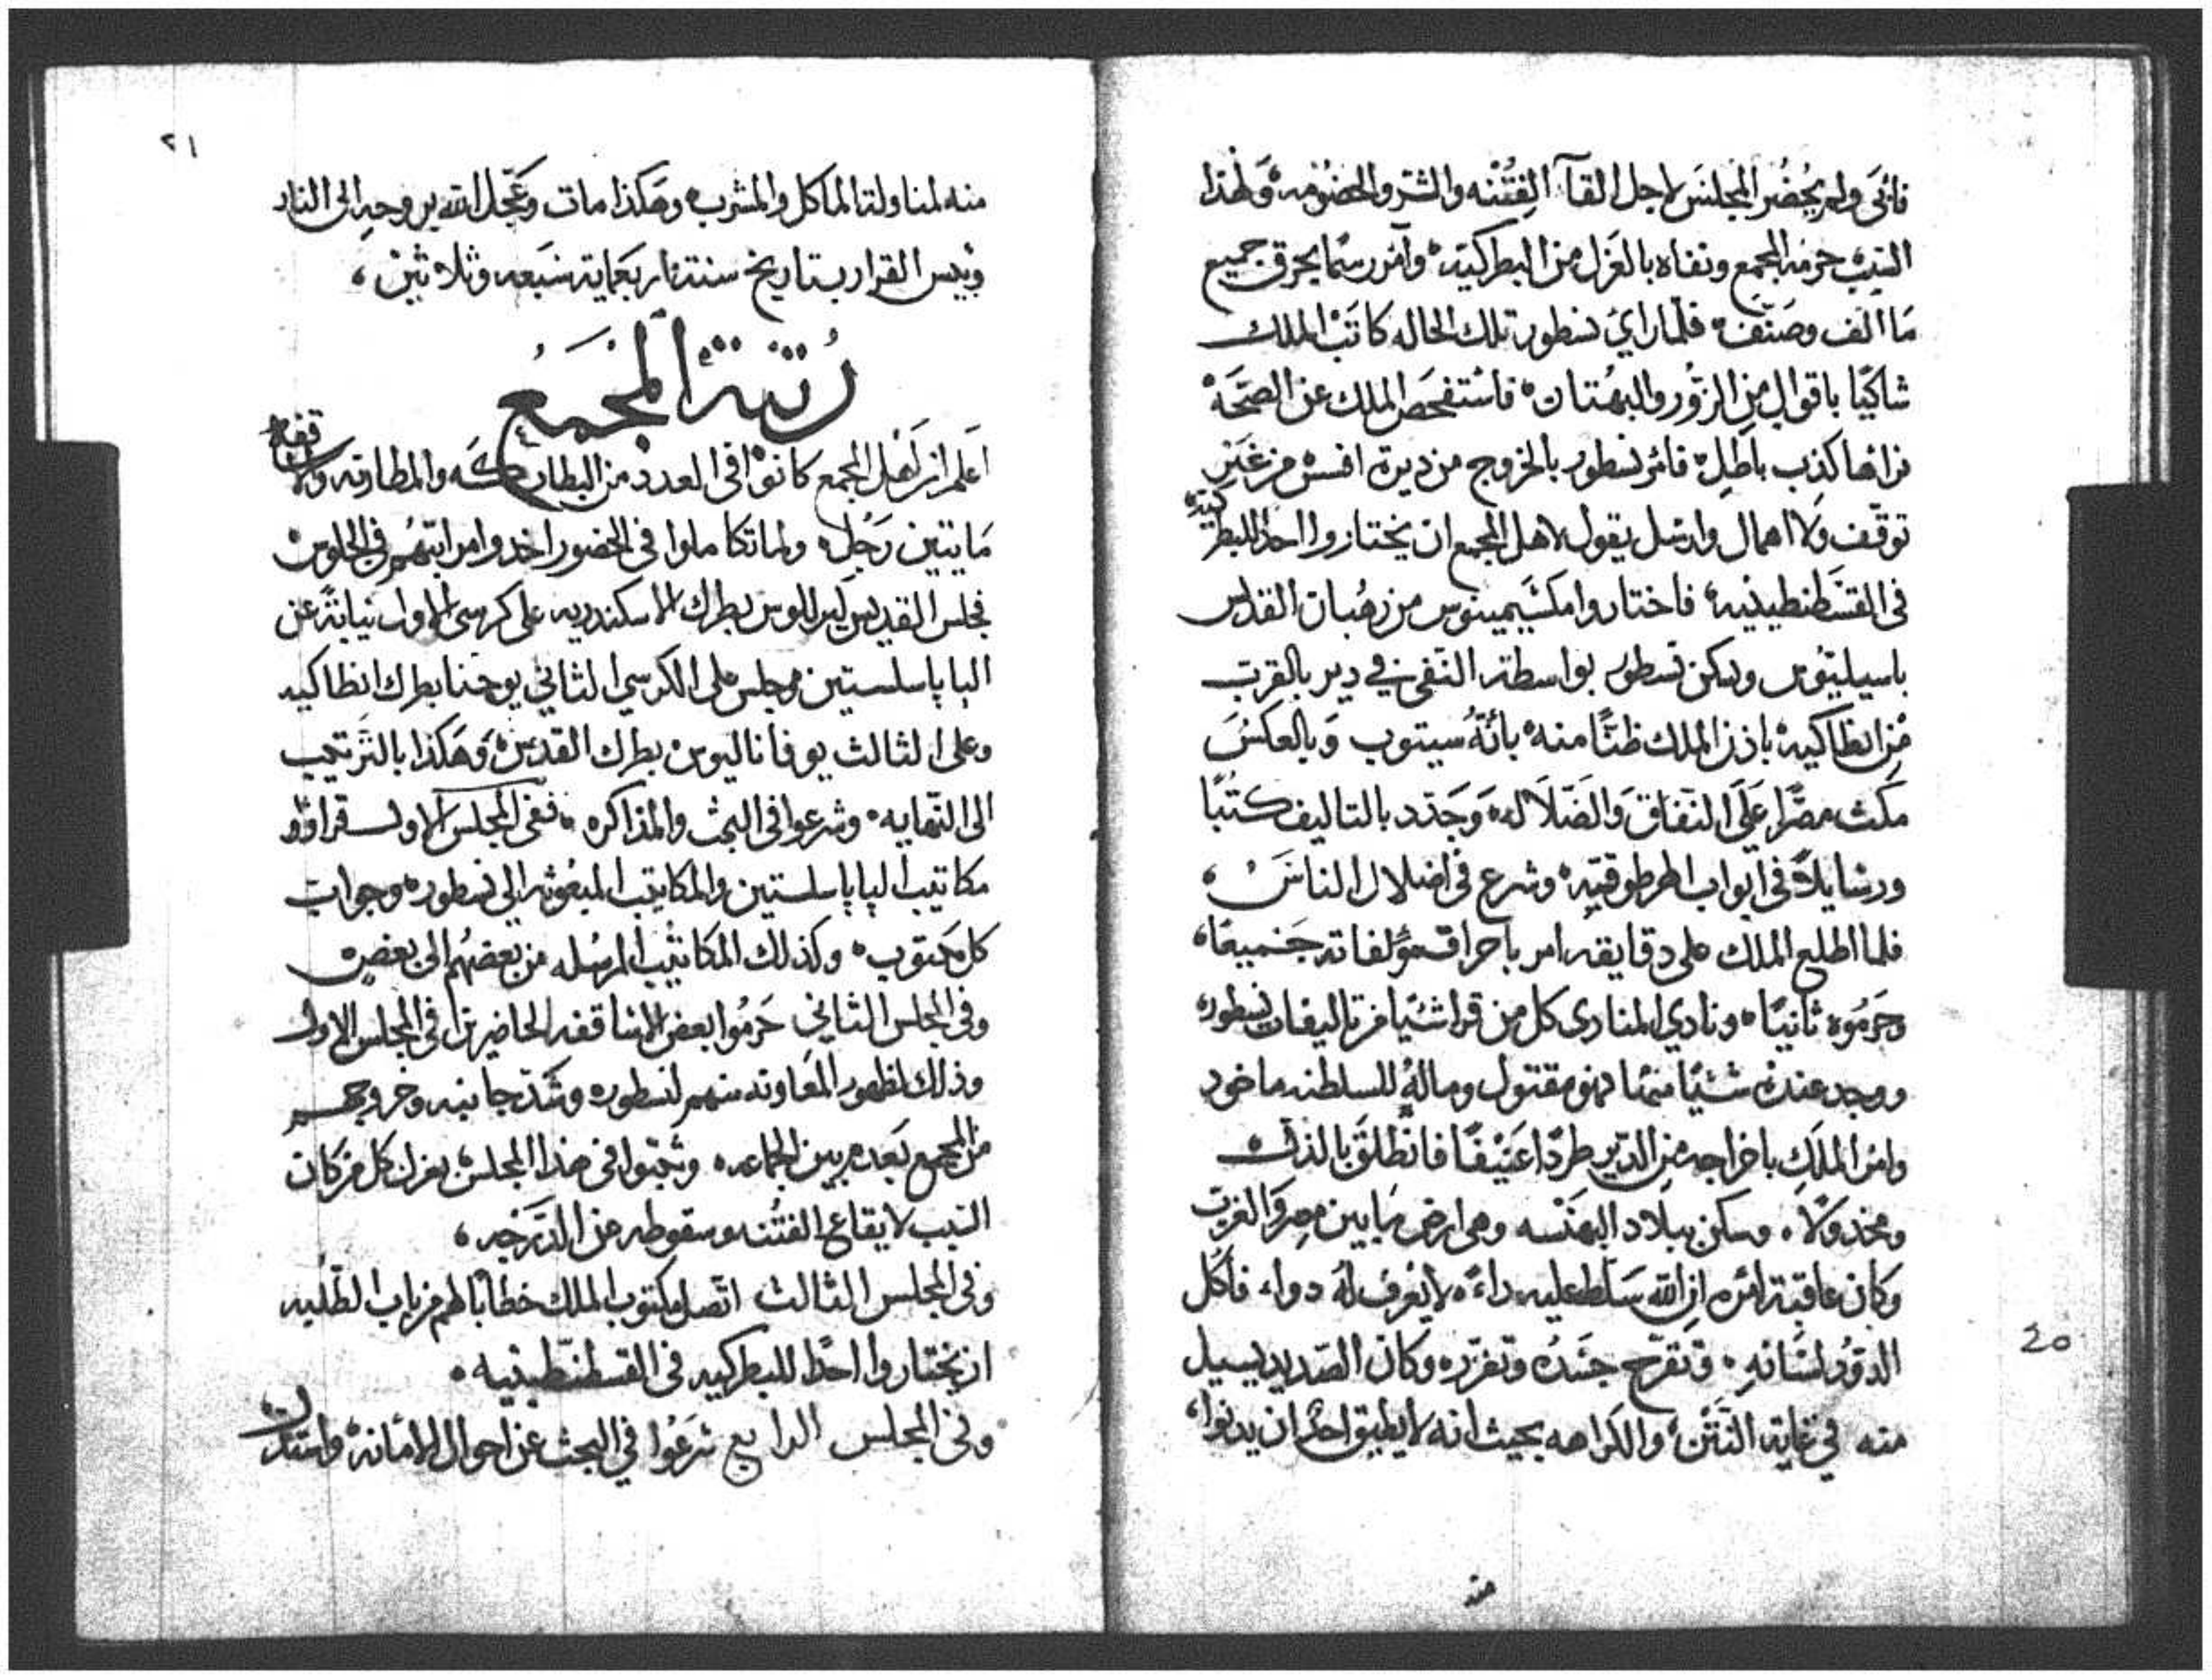 فابَى ولم يُحضُر المجلسَ لاجل القآ الفِتْنه والشر والخصُومه، وَلهٰذا
السَبَبْ حرَمَه المجمع ونفاه بالعَزل من البطركيّه، وآمَر رسمًا يحرق جميع
مَا الّف وصَنّفْ، فلما راىَ نسطور تلك الحاله كاتَبْ الملك
شاكيًا باقوال مِن الزُور والبهُتان، فاستفحصَ الملك عن الصحَّهْ
فراها كذب باطِل، فامَر نسطور بالخروج من ديرة افسس من غير
توقّف ولا اهمال وارسَل يقول لاهل المجمع ان يختاروا احدًا للبطركيّه
فى القسَطنطينيه، فاختاروا مكسَيمينوس من رهُبان القدس
باسيليُوس وسكن نسطور بواسطة النَفى في دير بالقرب
مِن انطاكيه، باذن الملك ظنًّا منه، بانّهُ سيتوب وَبالعكسَ
مكث مصَّرًا عَلَى النفاق وَالضَلَاله، وَجَدد بالتاليف كتُبًا
ورسَايلاً فى ابواب الهرطوقيّه، وشرع فى اضلال الناسْ،
فلما اطلع الملك على دقايقه امر باحراق مؤلفاته جَميعًا،
وحَرمُوه ثانيًا، ونادي المنادى كل من قرا شيًا من تاليفات نسطور،
ووجد عنده شيًا منها فهو مقتول ومالهُ للسلطنه ماخود
وامَر الملكِ باخراجه مِن الدَير طردًا عَنيفًا فانطَلقَ بالذل
ومخدولاً، وسكن ببلاد البهنَسه وهى ارض مَا بين مصر وَالغرب
وكان عاقبة امره ان الله سَلط عليه داءً، لا يُعرف لهُ دواء، فاكَل
الدودُ لسَانهِ، وتقرّح جسَدُه وتفزّر، وكان الصَديد يسيل
منه في غاية النتَن، والكراهه بحيث انه لا يطيق احدًا ان يدنوا،
منه
20
٢١
منه لمناولة الماكل والمشرب، وهَكذا مات وَعَجّل الله بروحهِ الى النار
وبيس القرار بتاريخ سنة اربعماية سَبَعه وثلاثين،
رُتبة المجمَعُ
اَعلم ان اَهل المجمع كانوْا فى العدد من البطاركَه والمطارنه والاساقفه
مَايتين رَجُل، ولما تكاملوا فى الحضور اخدوا مراتبَهُم فى الجلوس
فجلس القديس كيرللوس بطرك الاسكندريه على كرسى الاول نيابةً عن
البابا سلستين، وجلس على الكرسي الثاني يوحنا بطرك انطاكيه
وعلى الثالث يوفاناليوس بطرك القدس، وَهَكذا بالتَرتيب
الى النهايه، وشرعوا فى البحث والمذاكره، ففى المجلس الاول قراوْا
مكاتيب البابا سلستين والمكاتيب المبعُوثه الى نسطور، وجواب
كل مَكتوب، وكذلك المكاتيب المرسُله من بعضهُم الى بعض،
وفى المجلس الثاني حَرمُوا بعض الاساقفه الحاضرين فى المجلس الاول
وذلك لظهور المعَاونه منهم لنسطور، وشَدّ جانبه وخروجهم
من المجمع بَعدهم بين الجماعه، وثبتوا فى هذا المجلس، بعزل كل من كان
السَبب لايقاع الفتُنه وسقوطه عن الدَرَجه،
وفى المجلس الثالث اتصل مكتوب الملك خطاباً لهم من باب الطَلبه
ان يختاروا احدًا للبطركيه فى القسطنطينيه،
وفى المجلس الرابع شرَعُوا فى البحث عن احوال الامانه،